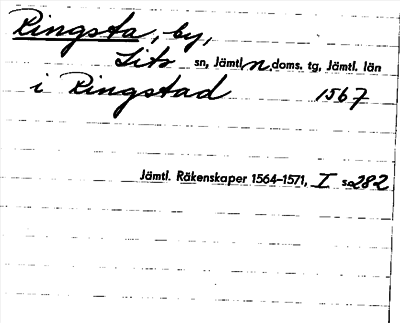 Ringsta, by,
Lits sn, Jämtl. n. doms. tg, Jämtl. län
i Ringstad 1567
Jämtl. Räkenskaper 1564–1571, I s. 282